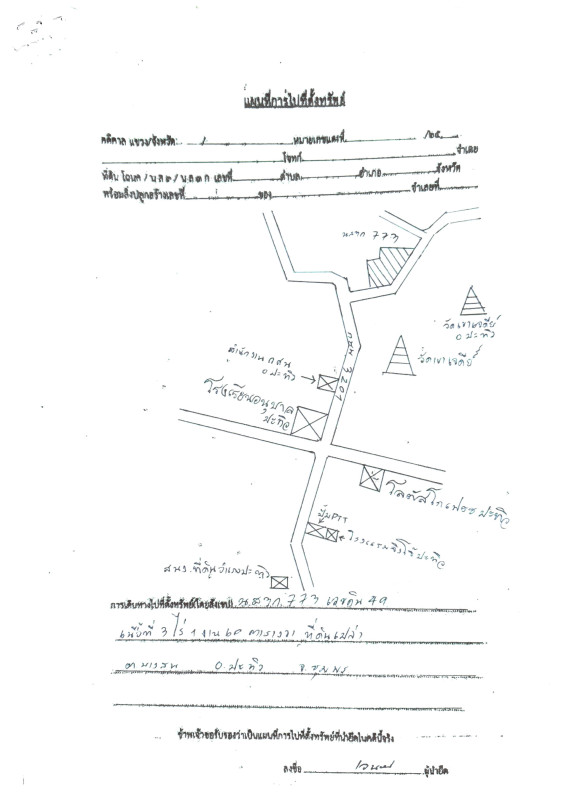 แผนที่การไปที่ตั้งทรัพย์
คดีศาล แขวง/จังหวัด / หมายเลขแดงที่ /๒๕
โจทก์ จำเลย
ที่ดิน โฉนด / น.ส.๓ / น.ส.๓ ก. เลขที่ ตำบล อำเภอ จังหวัด
พร้อมสิ่งปลูกสร้างเลขที่ ของ จำเลยที่
นส3ก 773
วัดเขาเจดีย์
อ ปะทิว
วัดเขาเจดีย์
ถนน 3201
สำนักงาน กศน
อ ปะทิว
โรงเรียนอนุบาล
ปะทิว
โลตัสโกเฟรช ปะทิว
ปั๊มPTT
ปะทิว
สนง.ที่ดิน ปะทิว
การเดินทางไปที่ตั้งทรัพย์(โดยสังเขป) น.ส.3ก. 773 เลขดิน 49
เนื้อที่ 3 ไร่ 1 งาน ตารางวา ที่ดินเปล่า
ต บางสน อ.ปะทิว จ.ชุมพร
ข้าพเจ้าขอรับรองว่าเป็นแผนที่การไปที่ตั้งทรัพย์ที่นำยึดในคดีนี้จริง
ลงชื่อ ผู้นำยึด